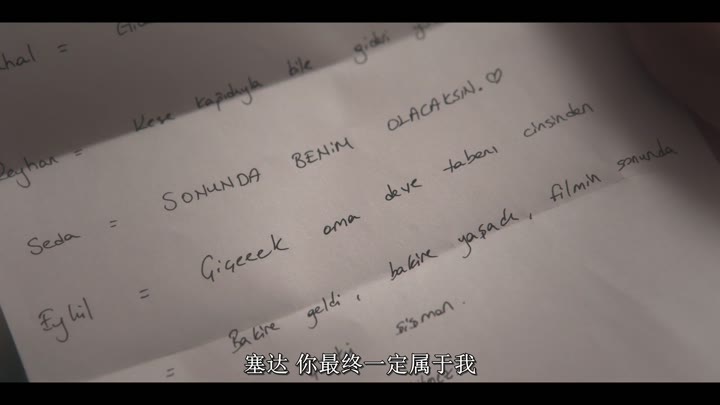 Kese kapıdıyla bile gidiyi
Reyhan =
Seda = SONUNDA BENİM OLACAKSIN. ♡
Eylül = Çiçeeek ama deve tabanı cinsinden
= Bakire geldi, bakire yaşadı, filmin sonunda
şişman.
塞达 你最终一定属于我